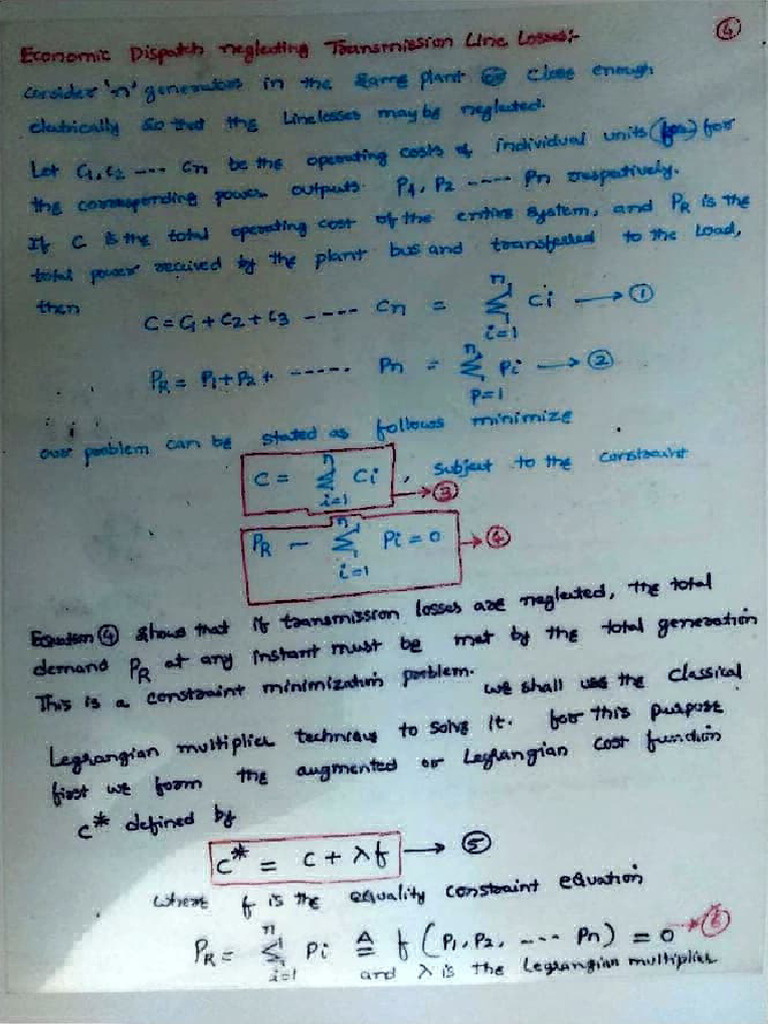 6
Economic Dispatch neglecting Transmission Line Losses:-
consider 'n' generators in the same plant or close enough
electrically so that the Line losses may be neglected.
Let C1, C2 ---- Cn be the operating costs of individual units for
the corresponding power outputs P1, P2 ----- Pn respectively.
If C is the total operating cost of the entire system, and PR is the
total power received by the plant bus and transferred to the Load,
then
C = C1 + C2 + C3 ----- Cn = n Σ i=1 Ci → 1
PR = P1 + P2 + ------ Pn = n Σ P=1 Pi → 2
our problem can be stated as follows minimize
C = n Σ i=1 Ci , subject to the constraint
→ 3
PR - n Σ i=1 Pi = 0 → 4
Equation 4 shows that if transmission losses are neglected, the total
demand PR at any instant must be met by the total generation
This is a constraint minimization problem. we shall use the classical
Legrangian multiplier technique to solve it. for this purpose
first we form the augmented or Legrangian cost function
C* defined by
C* = C + λf → 5
where f is the equality constraint equation
PR = n Σ i=1 Pi ≜ f (P1, P2, ---- Pn) = 0 → 6
and λ is the Legrangian multiplier